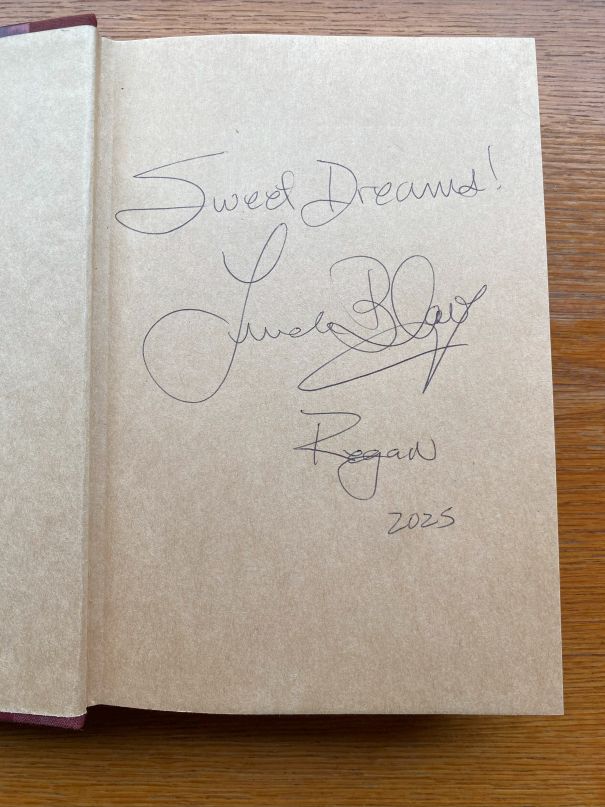 Sweet Dreams!
Linda Blair
Regan
2025